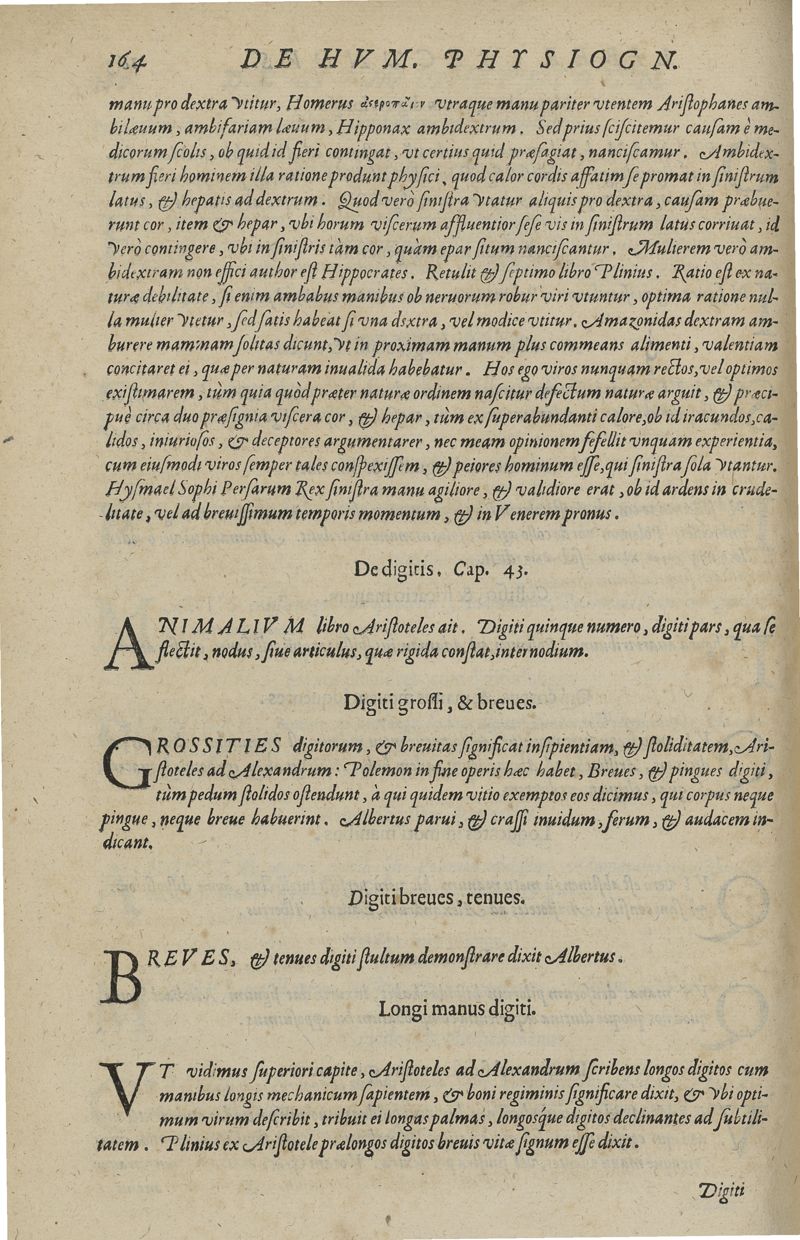 164 DE HVM. PHYSIOGN.
manu pro dextra vtitur, Homerus vtraque manu pariter vtentem Ariſtophanes am-
bilæuum, ambifariam læuum, Hipponax ambidextrum. Sed prius ſciſcitemur cauſam è me-
dicorum ſcolis, ob quid id fieri contingat, vt certius quid præſagiat, nanciſcamur. Ambidex-
trum fieri hominem illa ratione produnt phyſici, quod calor cordis affatim ſe promat in ſiniſtrum
latus, & hepatis ad dextrum. Quod verò ſiniſtra vtatur aliquis pro dextra, cauſam præbue-
runt cor, item & hepar, vbi horum viſcerum affluentior ſeſe vis in ſiniſtrum latus corriuat, id
verò contingere, vbi in ſiniſtris tàm cor, quàm epar ſitum nanciſcantur. Mulierem verò am-
bidextram non effici author eſt Hippocrates. Retulit & ſeptimo libro Plinius. Ratio eſt ex na-
turæ debilitate, ſi enim ambabus manibus ob neruorum robur viri vtuntur, optima ratione nul-
la mulier vtetur, ſed ſatis habeat ſi vna dsxtra, vel modice vtitur. Amazonidas dextram am-
burere mammam ſolitas dicunt, vt in proximam manum plus commeans alimenti, valentiam
concitaret ei, quæ per naturam inualida habebatur. Hos ego viros nunquam rectos, vel optimos
exiſtimarem, tùm quia quòd præter naturæ ordinem naſcitur defectum naturæ arguit, & præci-
puè circa duo præſignia viſcera cor, & hepar, tùm ex ſuperabundanti calore, ob id iracundos, ca-
lidos, iniurioſos, & deceptores argumentarer, nec meam opinionem fefellit vnquam experientia,
cum eiuſmodi viros ſemper tales conſpexiſſem, & peiores hominum eſſe, qui ſiniſtra ſola vtantur.
Hyſmael Sophi Perſarum Rex ſiniſtra manu agiliore, & validiore erat, ob id ardens in crude-
litate, vel ad breuiſſimum temporis momentum, & in Venerem pronus.
De digitis, Cap. 43.
ANIMALIVM libro Ariſtoteles ait. Digiti quinque numero, digiti pars, qua ſe
flectit, nodus, ſiue articulus, quæ rigida conſtat, internodium.
Digiti groſſi, & breues.
GROSSITIES digitorum, & breuitas ſignificat inſipientiam, & ſtoliditatem, Ari-
ſtoteles ad Alexandrum: Polemon in fine operis hæc habet, Breues, & pingues digiti,
tùm pedum ſtolidos oſtendunt, à qui quidem vitio exemptos eos dicimus, qui corpus neque
pingue, neque breue habuerint. Albertus parui, & craſſi inuidum, ferum, & audacem in-
dicant.
Digiti breues, tenues.
BREVES, & tenues digiti ſtultum demonſtrare dixit Albertus.
Longi manus digiti.
VT vidimus ſuperiori capite, Ariſtoteles ad Alexandrum ſcribens longos digitos cum
manibus longis mechanicum ſapientem, & boni regiminis ſignificare dixit, & vbi opti-
mum virum deſcribit, tribuit ei longas palmas, longosq́ue digitos declinantes ad ſubtili-
tatem. Plinius ex Ariſtotele prælongos digitos breuis vitæ ſignum eſſe dixit.
Digiti